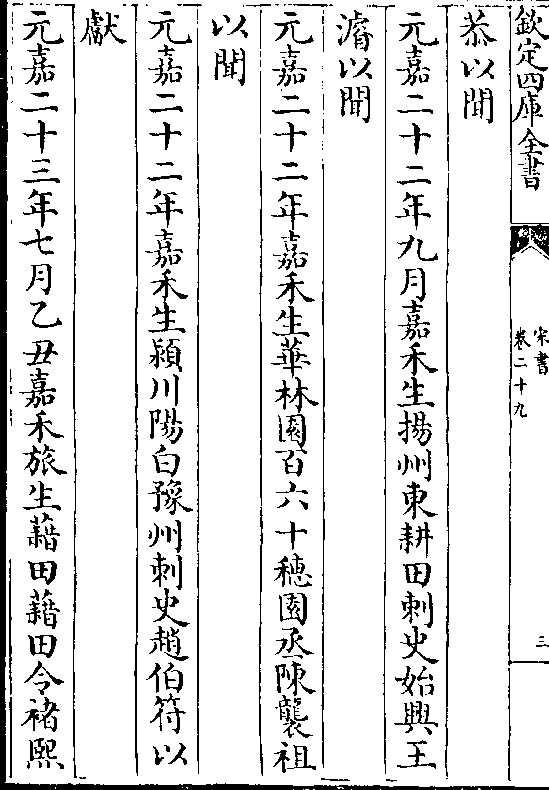 欽定四庫全書
宋書
卷二十九
三
恭以聞
元嘉二十二年九月嘉禾生揚州東耕田刺史始興王
濬以聞
元嘉二十二年嘉禾生華林園百六十穗園丞陳襲祖
以聞
元嘉二十二年嘉禾生潁川陽白豫州刺史趙伯符以
獻
元嘉二十三年七月乙丑嘉禾旅生藉田藉田令褚熙